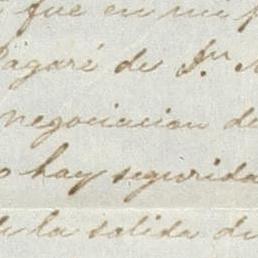 fue en mi
Pagaré de Sr
negociacion de
hay segurida
la salida de